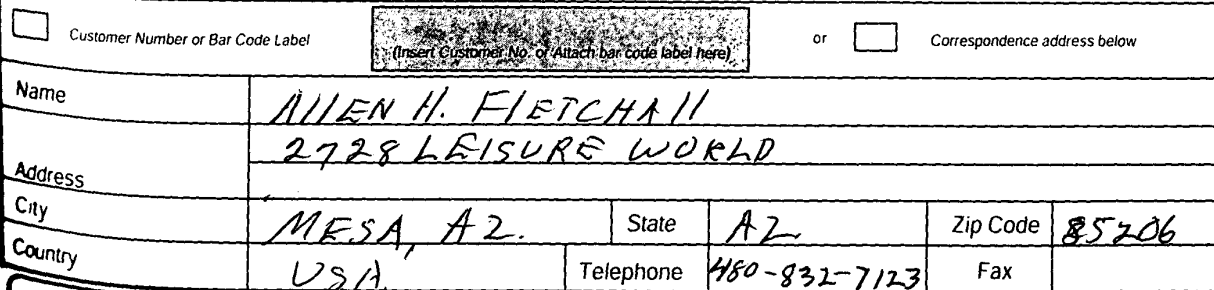 Customer Number or Bar Code Label (Insert Customer No. or Attach bar code label here) or Correspondence address below
Name ALLEN H. FLETCHALL
2728 LEISURE WORLD
Address
City MESA, AZ. State AZ Zip Code 85206
Country USA Telephone 480-832-7123 Fax